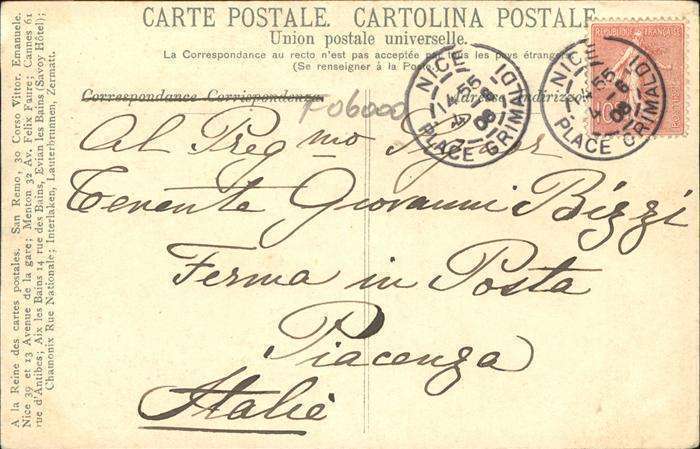 CARTE POSTALE. CARTOLINA POSTALE.
Union postale universelle.
La Correspondance au recto n'est pas acceptée par tous les pays étrangers
(Se renseigner à la Poste)
Correspondance Corrispondenza
Adresse Indirizzo
F06000
NICE
PLACE GRIMALDI
NICE
PLACE GRIMALDI
REPUBLIQUE FRANÇAISE
POSTES
Al Preg.mo Signor
Tenente Giovanni Bizzi
Ferma in Posta
Piacenza
Italie
A la Reine des cartes postales. San Remo, 30 Corso Vittor. Emanuele.
Nice 39 et 13 Avenue de la gare; Menton 32 Av. Felix Faure; Cannes 61
rue d'Antibes; Aix les Bains 14 rue des Bains, Evian les Bains (Savoy Hôtel);
Chamonix Rue Nationale; Interlaken, Lauterbrunnen, Zermatt.